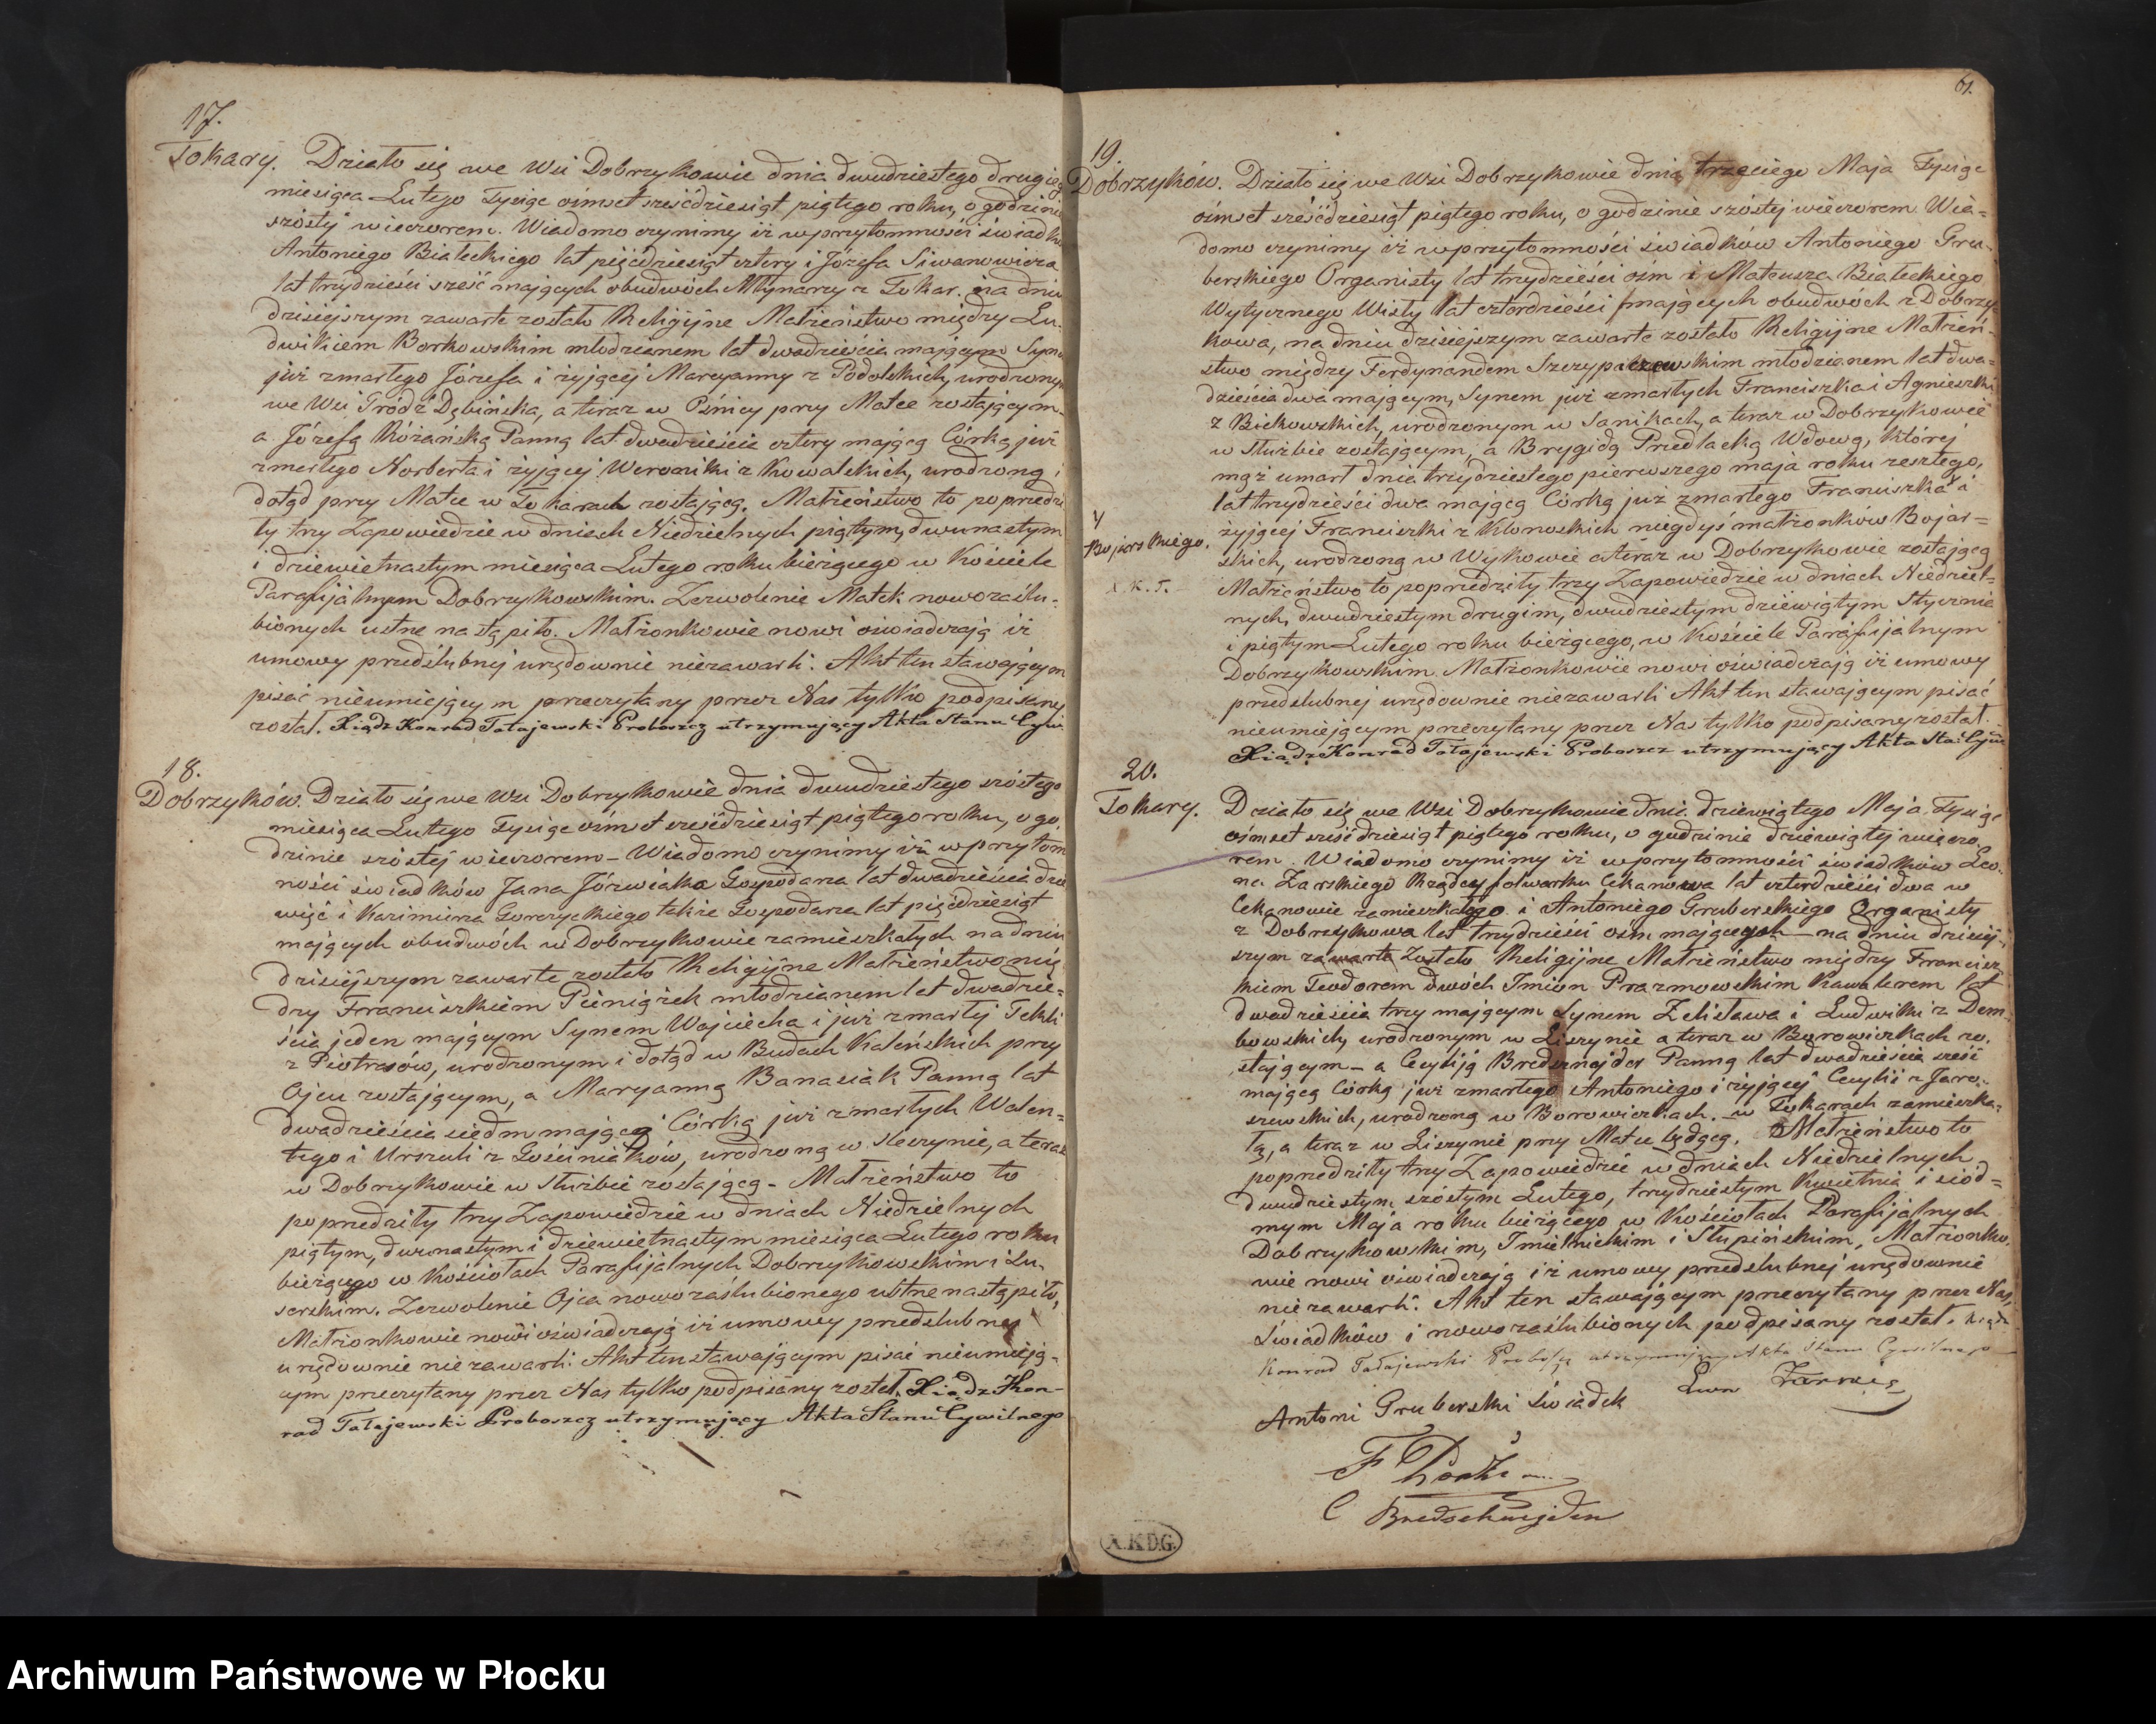 17.
Tokary. Działo się we Wsi Dobrzykowie dnia dwudziestego drugiego
miesiąca Lutego Tysiąc ośmset sześćdziesiąt piątego roku, o godzinie
szóstej wieczorem. Wiadomo czynimy iż w przytomności świadków
Antoniego Białeckiego lat pięćdziesiąt cztery i Józefa Siwanowicza
lat trzydzieści sześć mających obudwóch Młynarzy z Tokar. na dniu
dzisiejszym zawarte zostało Religijne Małżeństwo między Lu-
dwikiem Borkowskim młodzianem lat dwadzieścia mającym Synem
już zmarłego Józefa i żyjącej Maryanny z Podolskich, urodzonym
we Wsi Dębińska, a teraz w Ośnicy przy Matce zostającym
a Józefą Różańską Panną lat dwadzieścia cztery mającą Córką już
zmarłego Norberta i żyjącej Weroniki z Kowalskich, urodzoną i
dotąd przy Matce w Tokarach zostającą. Małżeństwo to poprzedzi-
ły trzy Zapowiedzie w dniach Niedzielnych piątym, dwunastym
i dziewietnastym miesiąca Lutego roku bieżącego w Kościele
Parafijalnym Dobrzykowskim. Zezwolenie Matek nowozaślu-
bionych ustne nastąpiło. Małżonkowie nowi oświadczają iż
umowy przedślubnej urzędownie niezawarli. Akt ten stawającym
pisać nieumiejącym przeczytany przez Nas tylko podpisany
został. Xiądz Konrad Tołajewski Proboszcz utrzymujący Akta Stanu Cywil
18.
Dobrzyków. Działo się we Wsi Dobrzykowie dnia dwudziestego szóstego
miesiąca Lutego Tysiąc ośmset sześćdziesiąt piątego roku, o go-
dzinie szóstej wieczorem – Wiadomo czynimy iż w przytom
ności świadków Jana Józwiaka Gospodarza lat dwadzieścia dzie
więć i Kazimirza Gorczyckiego także Gospodarza lat pięćdziesiąt
mających obudwóch w Dobrzykowie zamieszkałych na dniu
dzisiejszym zawarte zostało Religijne Małżeństwo mię
dzy Franciszkiem Pieniążek młodzianem lat dwadzie-
ścia jeden mającym Synem Wojciecha i już zmarłej Tekli
z Piotrasów, urodzonym i dotąd w Budach Kaleńskich przy
Ojcu zostającym, a Maryanną Banasiak Panną lat
dwadzieścia siedm mającą Córką już zmarłych Walen-
tego i Urszuli z Gościniaków, urodzoną w Steczynie, a teraz
w Dobrzykowie w służbie zostającą – Małżeństwo to
poprzedziły trzy Zapowiedzie w dniach Niedzielnych
piątym, dwunastym i dziewietnastym miesiąca Lutego roku
bieżącego w Kościołach Parafijalnych Dobrzykowskim i Lu-
serskim. Zezwolenie Ojca nowozaślubionego ustne nastąpiło,
Małżonkowie nowi oświadczają iż umowy przedślubnej
urzędownie niezawarli. Akt ten stawającym pisać nieumieją-
cym przeczytany przez Nas tylko podpisany został. Xiądz Kon-
rad Tołajewski Proboszcz utrzymujący Akta Stanu Cywilnego
61.
19.
Dobrzyków. Działo się we Wsi Dobrzykowie dnia trzeciego Maja Tysiąc
ośmset sześćdziesiąt piątego roku, o godzinie szóstej wieczorem. Wia-
domo czynimy iż w przytomności świadków Antoniego Gru-
berskiego Organisty lat trzydzieści ośm i Mateusza Białeckiego
Wytycznego Wisły lat czterdzieści mających obudwóch z Dobrzy
kowa, na dniu dzisiejszym zawarte zostało Religijne Małżeń-
stwo między Ferdynandem Szczypiczewskim młodzianem lat dwa-
dzieścia dwa mającym, Synem już zmarłych Franciszka i Agnieszki
z Bickowskich, urodzonym w Sanikach, a teraz w Dobrzykowie
w służbie zostającym, a Brygidą Przedlacką Wdową, której
mąż umarł dnia trzydziestego pierwszego maja roku zeszłego,
lat trzydzieści dwa mającą Córką już zmarłego Franciszka i
żyjącej Franciszki z Klonoskich niegdyś małżonków Bojar-
Bojarskiego.
skich, urodzoną w Wykowie a teraz w Dobrzykowie zostającą
X. K. T.
Małżeństwo to poprzedziły trzy Zapowiedzie w dniach Niedziel-
nych, dwudziestym drugim, dwudziestym dziewiątym Stycznia
i piątym Lutego roku bieżącego, w Kościele Parafijalnym
Dobrzykowskim. Małżonkowie nowi oświadczają iż umowy
przedślubnej urzędownie niezawarli Akt ten stawającym pisać
nieumiejącym przeczytany przez Nas tylko podpisany został.
Xiądz Konrad Tołajewski Proboszcz utrzymujący Akta Sta: Cywil
20.
Tokary. Działo się we Wsi Dobrzykowie dnia dziewiątego Maja Tysiąc
ośmset sześćdziesiąt piątego roku, o godzinie dziewiątej wieczo
rem. Wiadomo czynimy iż w przytomności świadków Leo-
na Zarskiego Rządcy folwarku Cekanowa lat czterdzieści dwa w
Cekanowie zamieszkałego i Antoniego Gruberskiego Organisty
z Dobrzykowa lat trzydzieści ośm mających – na dniu dzisiej-
szym zawarte Zostało Religijne Małżeństwo między Francisz
kiem Teodorem dwóch Imion Prazmowskim Kawalerem lat
dwadzieścia trzy mającym Synem Zelisława i Ludwiki z Dem-
bowskich, urodzonym w Liszynie a teraz w Borowiczkach zo-
stającym – a Cecyliją Bredsznajder Panną lat dwadzieścia sześć
mającą Córką już zmarłego Antoniego i żyjącej Cecylii z Jaro-
szewskich, urodzoną w Borowiczkach. w Tokarach zamieszka-
łą, a teraz w Liszynie przy Matce będącą. Małżeństwo to
poprzedziły trzy Zapowiedzie w dniach Niedzielnych
dwudziestym szóstym Lutego, trzydziestym Kwietnia i siód-
mym Maja roku bieżącego w Kościołach Parafijalnych
Dobrzykowskim, Imielnickim i Słupińskim, Małżonko-
wie nowi oświadczają iż umowy przedślubnej urzędownie
niezawarli. Akt ten stawającym przeczytany przez Nas,
Świadków i nowozaślubionych podpisany został. Xiądz
Konrad Tołajewski Proboszcz utrzymujący Akta Stanu Cywilnego
Antoni Gruberski świadek
C Bredschneider
X.K.D.G.
Archiwum Państwowe w Płocku